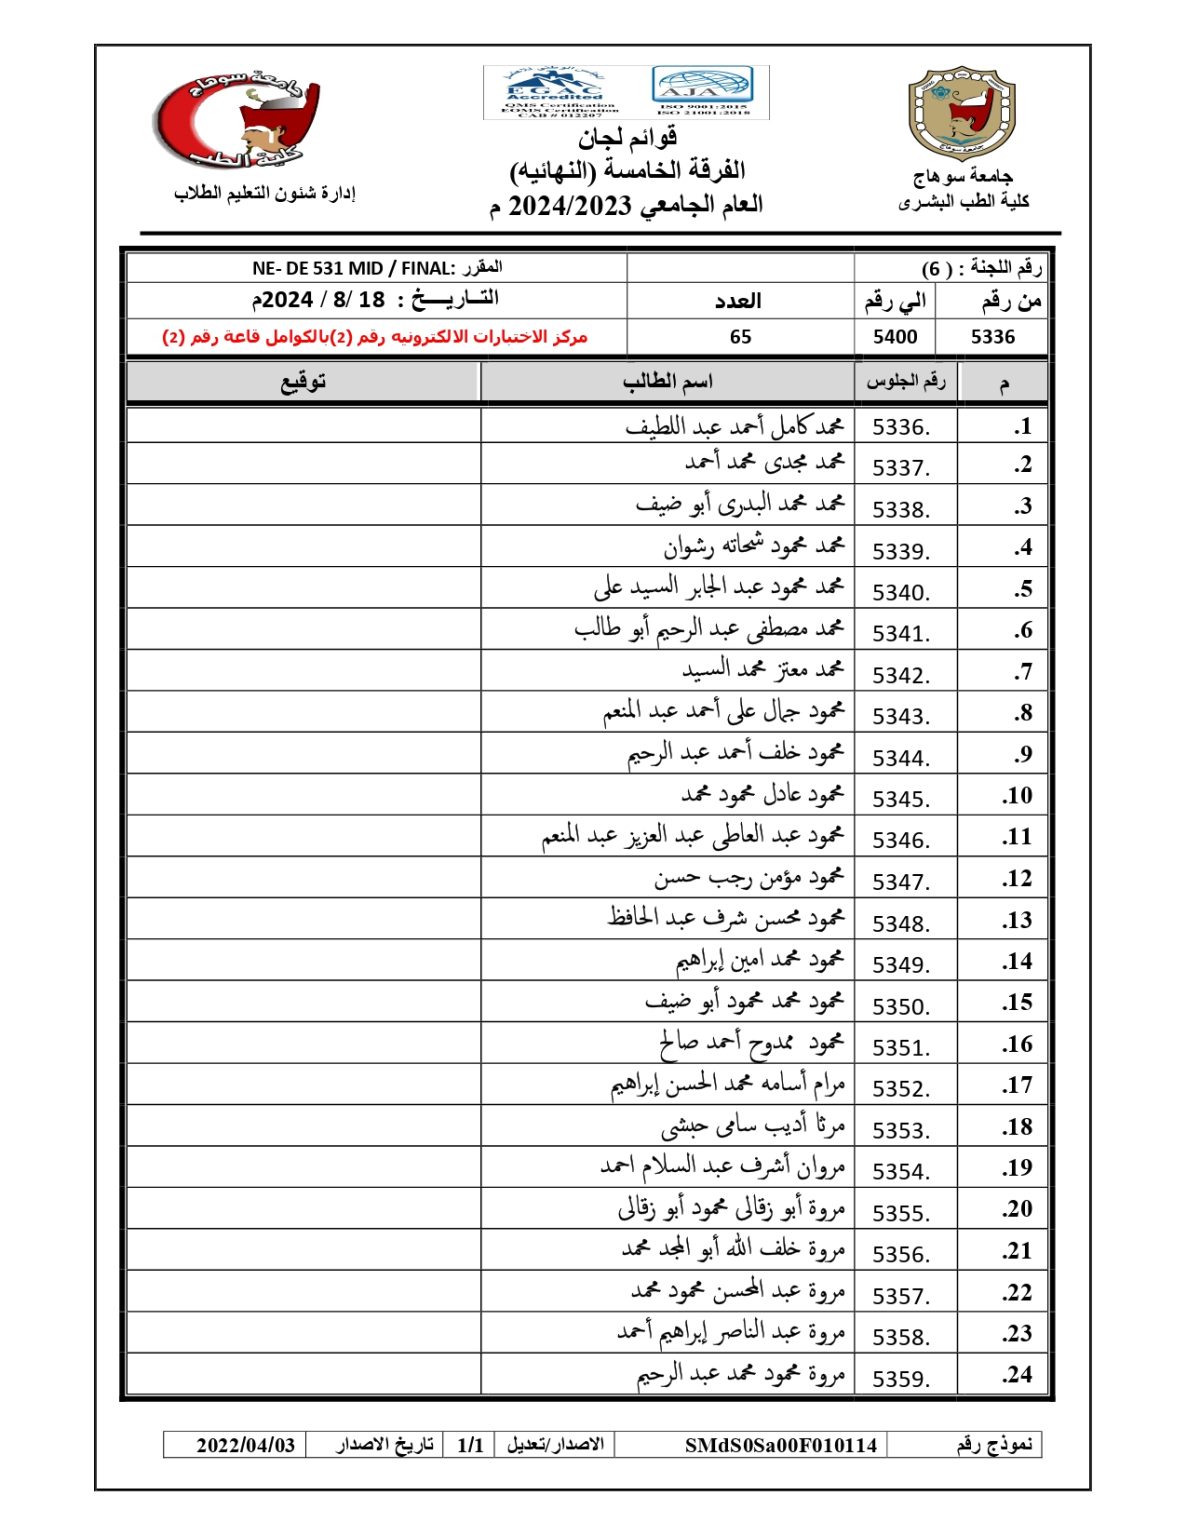 جامعة سوهاج
كلية الطب
إدارة شئون التعليم الطلاب
EGAC
Accredited
QMS Certification
EOMS Certification
CAB # 012207
AJA
ISO 9001:2015
ISO 21001:2018
قوائم لجان
الفرقة الخامسة (النهائيه)
العام الجامعي 2024/2023 م
جامعة سوهاج
جامعة سوهاج
كلية الطب البشرى
رقم اللجنة : ( 6)
المقرر :NE- DE 531 MID / FINAL
من رقم الي رقم العدد التـاريـــخ : 18 /8 / 2024م
5336 5400 65 مركز الاختبارات الالكترونيه رقم (2)بالكوامل قاعة رقم (2)
م رقم الجلوس اسم الطالب توقيع
1. 5336. محمدكامل أحمد عبد اللطيف
2. 5337. محمد مجدى محمد أحمد
3. 5338. محمد محمد البدرى أبو ضيف
4. 5339. محمد محمود شحاته رشوان
5. 5340. محمد محمود عبد الجابر السيد على
6. 5341. محمد مصطفى عبد الرحيم أبو طالب
7. 5342. محمد معتز محمد السيد
8. 5343. محمود جمال على أحمد عبد المنعم
9. 5344. محمود خلف أحمد عبد الرحيم
10. 5345. محمود عادل محمود محمد
11. 5346. محمود عبد العاطى عبد العزيز عبد المنعم
12. 5347. محمود مؤمن رجب حسن
13. 5348. محمود محسن شرف عبد الحافظ
14. 5349. محمود محمد امين إبراهيم
15. 5350. محمود محمد محمود أبو ضيف
16. 5351. محمود ممدوح أحمد صالح
17. 5352. مرام أسامه محمد الحسن إبراهيم
18. 5353. مرثا أديب سامى حبشى
19. 5354. مروان أشرف عبد السلام احمد
20. 5355. مروة أبو زقالى محمود أبو زقالى
21. 5356. مروة خلف الله أبو المجد محمد
22. 5357. مروة عبد المحسن محمود محمد
23. 5358. مروة عبد الناصر إبراهيم أحمد
24. 5359. مروة محمود محمد عبد الرحيم
نموذج رقم SMdS0Sa00F010114 الاصدار/تعديل 1/1 تاريخ الاصدار 2022/04/03